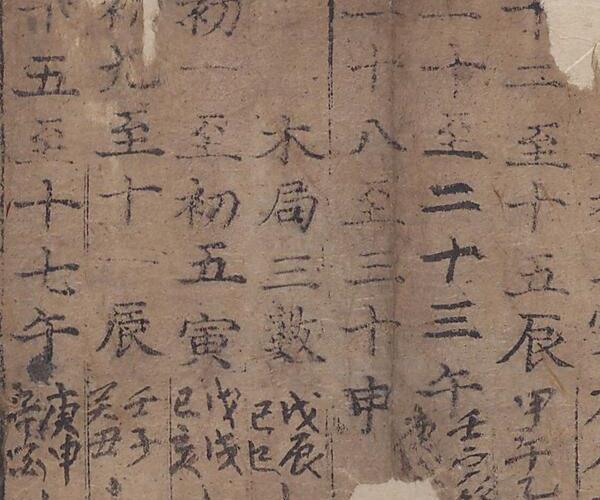 十二至十五辰 甲午乙
二十至二十三午 壬寅
二十八至三十申
木局三數 戊辰己巳
初一至初五寅 戊戌己亥
初九至十一辰 壬子癸丑
十五至十七午 庚申